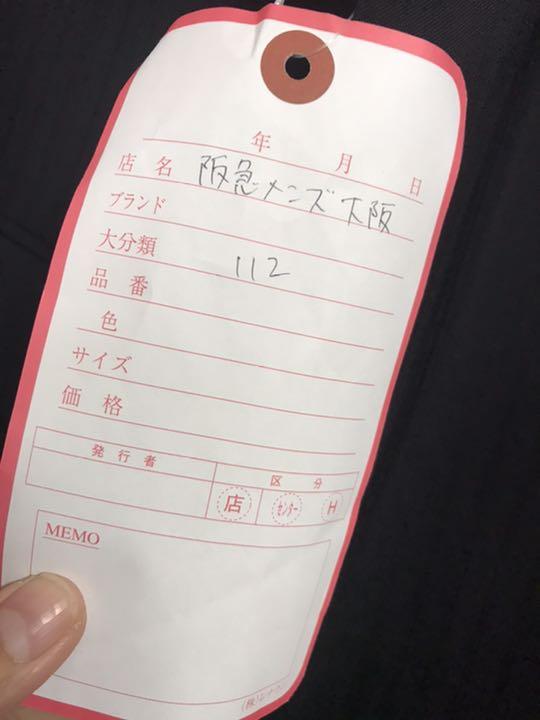 年 月 日
店名 阪急メンズ大阪
ブランド
大分類 112
品番
色
サイズ
価格
発行者 区分
店 センター H
MEMO